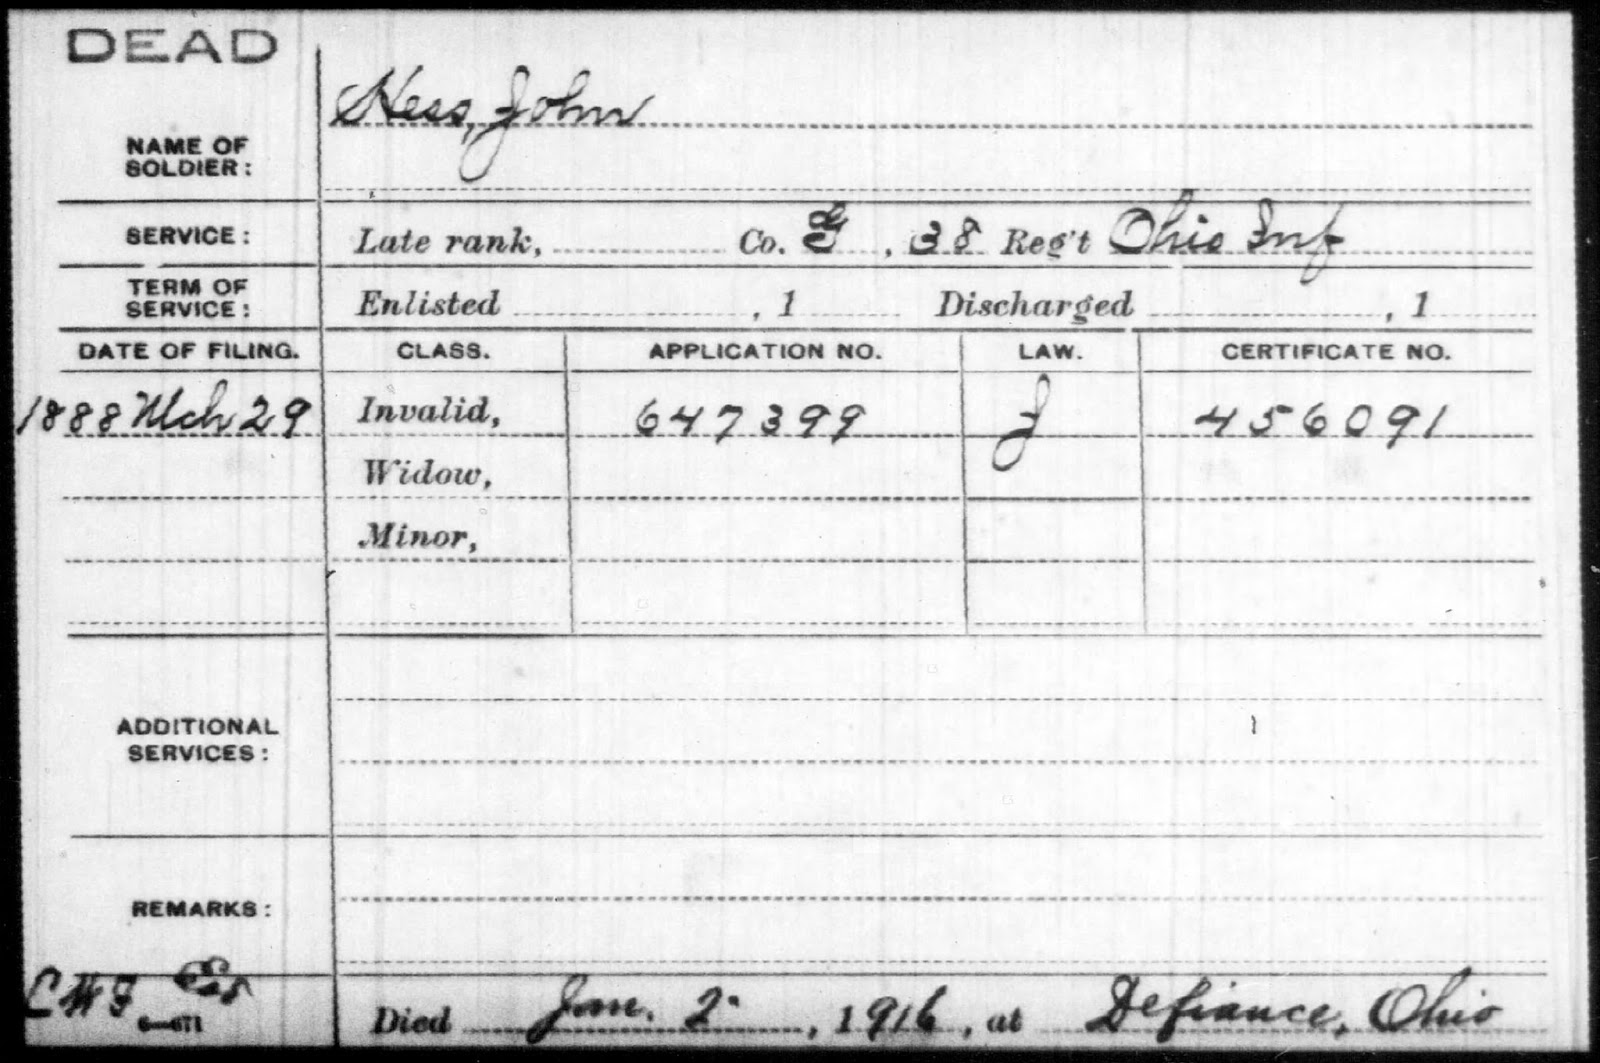 DEAD
Hess, John
NAME OF
SOLDIER:
SERVICE: Late rank, Co. G, 38 Reg't Ohio Inf
TERM OF
SERVICE: Enlisted , 1 Discharged , 1
DATE OF FILING. CLASS. APPLICATION NO. LAW. CERTIFICATE NO.
1888 Mch 29 Invalid, 647399 J 456091
Widow,
Minor,
ADDITIONAL
SERVICES:
REMARKS:
Died Jan. 2, 1916, at Defiance, Ohio
6—671